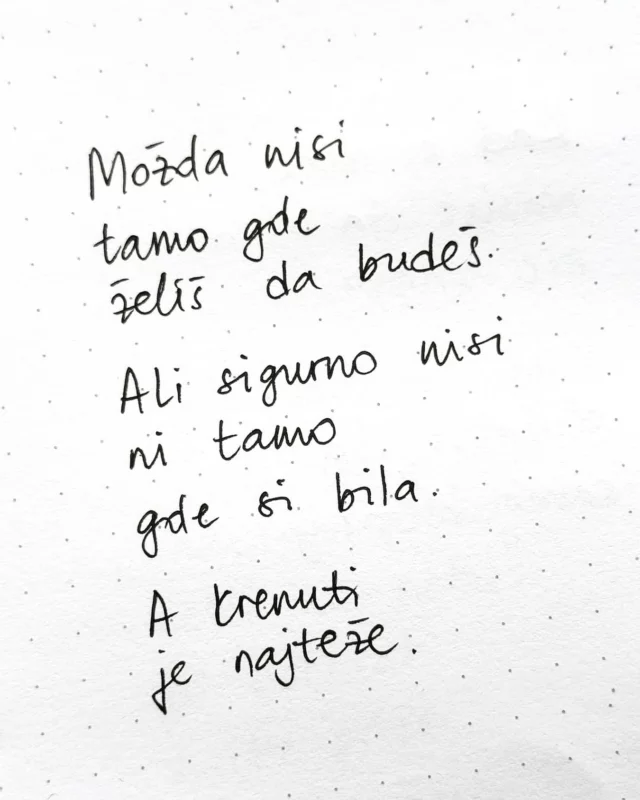 Možda nisi
tamo gde
želiš da budeš.
Ali sigurno nisi
ni tamo
gde si bila.
A krenuti
je najteže.